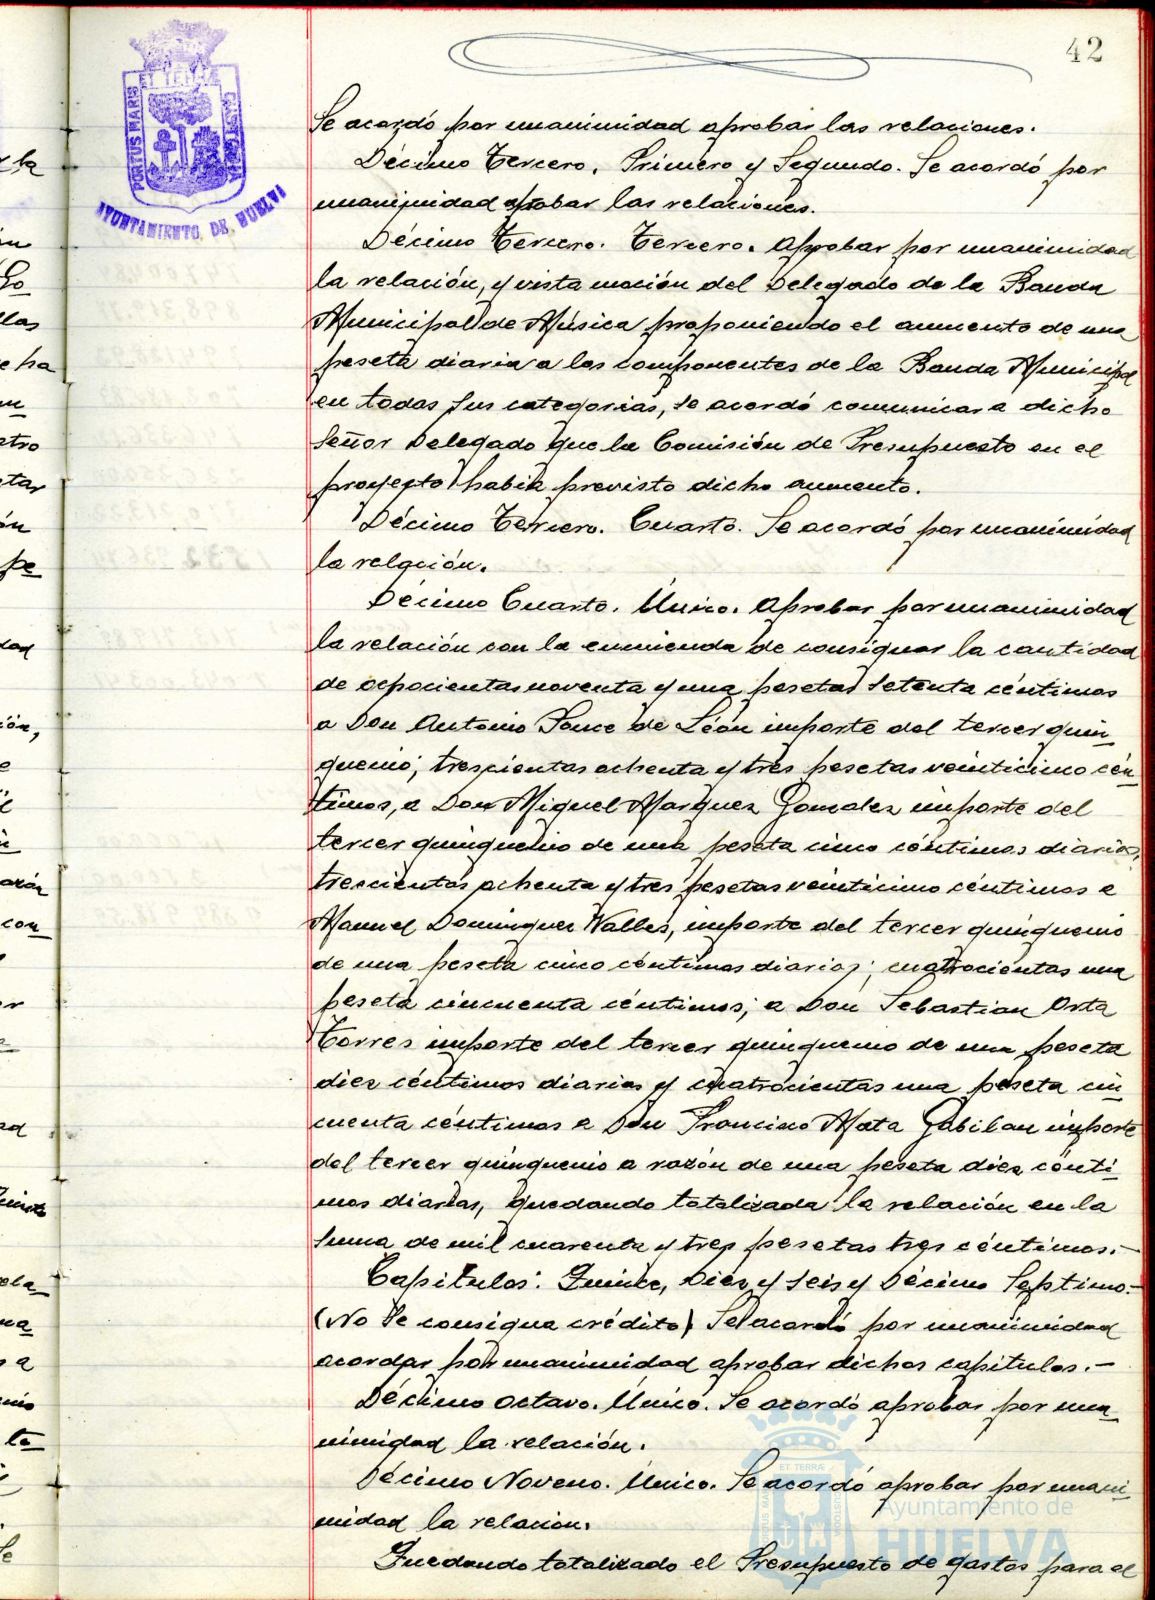 42
PORTUS MARIS ET TERRÆ CUSTODIA
AYUNTAMIENTO DE HUELVA
Se acordó por unanimidad aprobar las relaciones.
Décimo Tercero. Primero y Segundo. Se acordó por
unanimidad aprobar las relaciones.
Décimo Tercero. Tercero. Aprobar por unanimidad
la relación, y vista moción del Delegado de la Banda
Municipal de Música proponiendo el aumento de una
peseta diaria a los componentes de la Banda Municipal
en todas sus categorias, se acordó comunicar a dicho
Señor Delegado que la Comisión de Presupuesto en el
proyecto habia previsto dicho aumento.
Décimo Tercero. Cuarto. Se acordó por unanimidad
la relación.
Décimo Cuarto. Único. Aprobar por unanimidad
la relación con la enmienda de consignar la cantidad
de ochocientas noventa y una pesetas setenta céntimos
a Don Antonio Ponce de León importe del tercer quin
quenio; trescientas ochenta y tres pesetas veinticinco cén
timos, a Don Miguel Marquez Gonzalez importe del
tercer quinquenio de una peseta cinco céntimos diarios,
trescientas ochenta y tres pesetas veinticinco céntimos a
Manuel Dominguez Valles, importe del tercer quinquenio
de una peseta cinco céntimos diarios; cuatrocientas una
peseta cincuenta céntimos; a Don Sebastian Orta
Torres importe del tercer quinquenio de una peseta
diez céntimos diarios y cuatrocientas una peseta cin
cuenta céntimos a Don Francisco Mata Gabilan importe
del tercer quinquenio a razón de una peseta diez cénti
mos diarias, quedando totalizada la relación en la
suma de mil cuarenta y tres pesetas tres céntimos.-
Capitulos: Quince, Diez y seis y Décimo Septimo.-
(No se consigna crédito) Se acordó por unanimidad
acordar por unanimidad aprobar dichos capitulos.-
Décimo Octavo. Único. Se acordó aprobar por una
nimidad la relación.
Décimo Noveno. Único. Se acordó aprobar por unani
midad la relación.
Quedando totalizado el Presupuesto de gastos para el
Ayuntamiento de
HUELVA